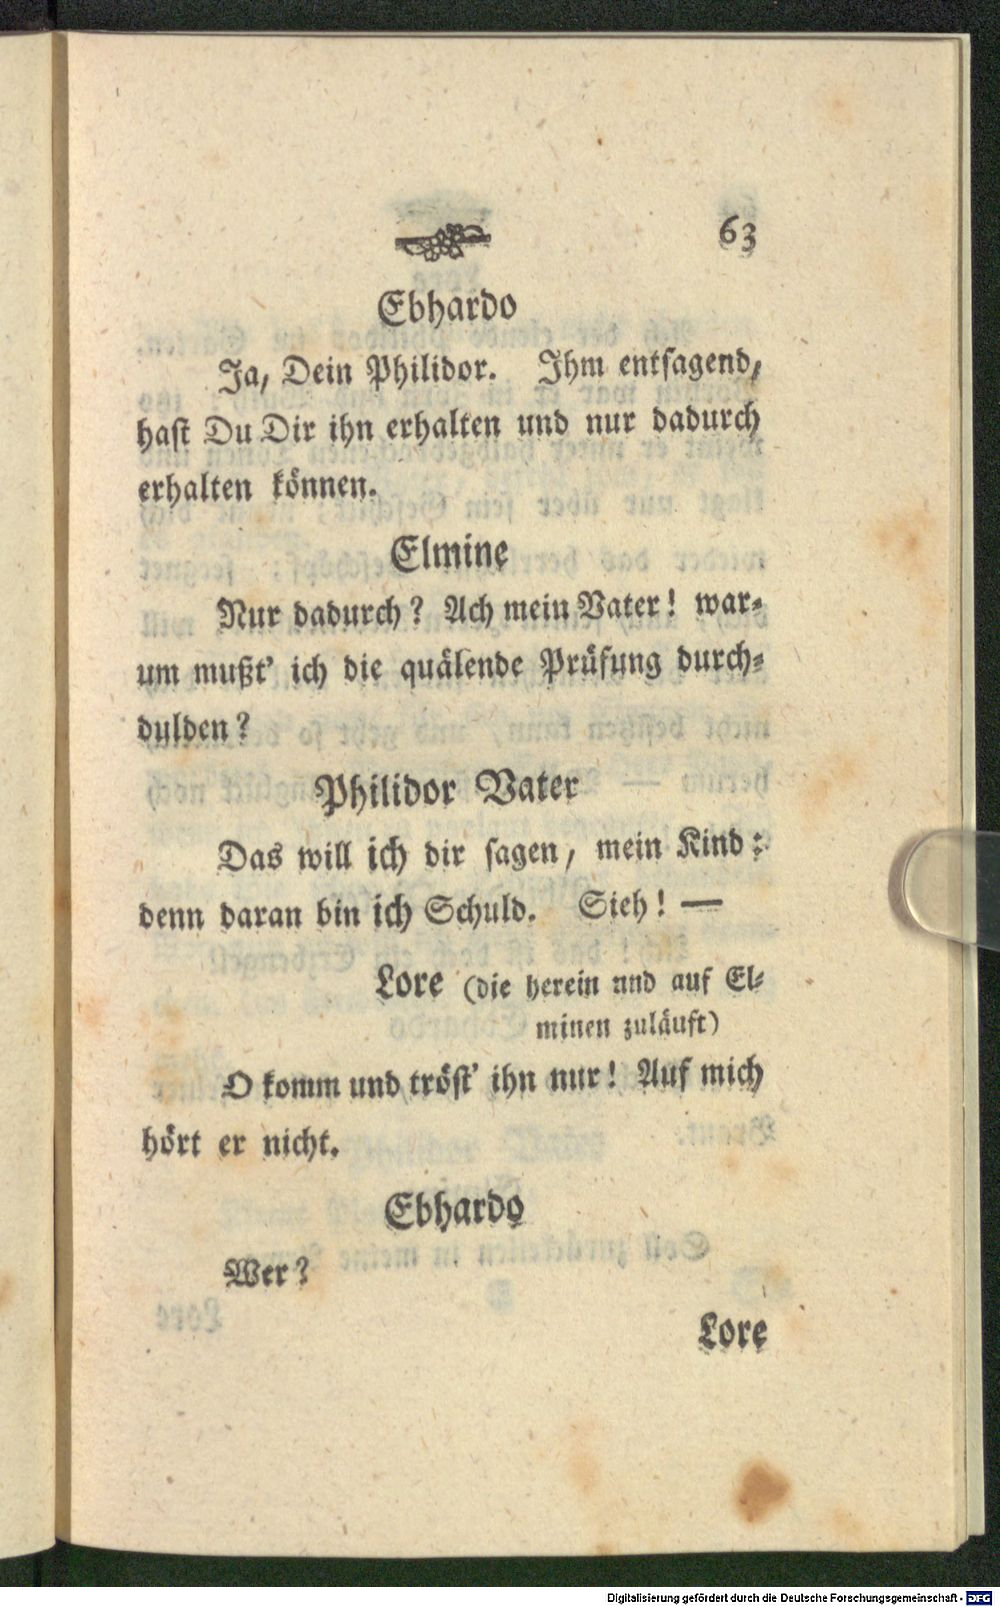 63
Ebhardo
Ja, Dein Philidor. Ihm entsagend,
hast Du Dir ihn erhalten und nur dadurch
erhalten können.
Elmine
Nur dadurch? Ach mein Vater! war-
um mußt' ich die quälende Prüfung durch-
dulden?
Philidor Vater
Das will ich dir sagen, mein Kind:
denn daran bin ich Schuld. Sieh! —
Lore (die herein und auf El-
minen zuläuft)
O komm und tröst' ihn nur! Auf mich
hört er nicht.
Ebhardo
Wer?
Lore
Digitalisierung gefördert durch die Deutsche Forschungsgemeinschaft - DFG